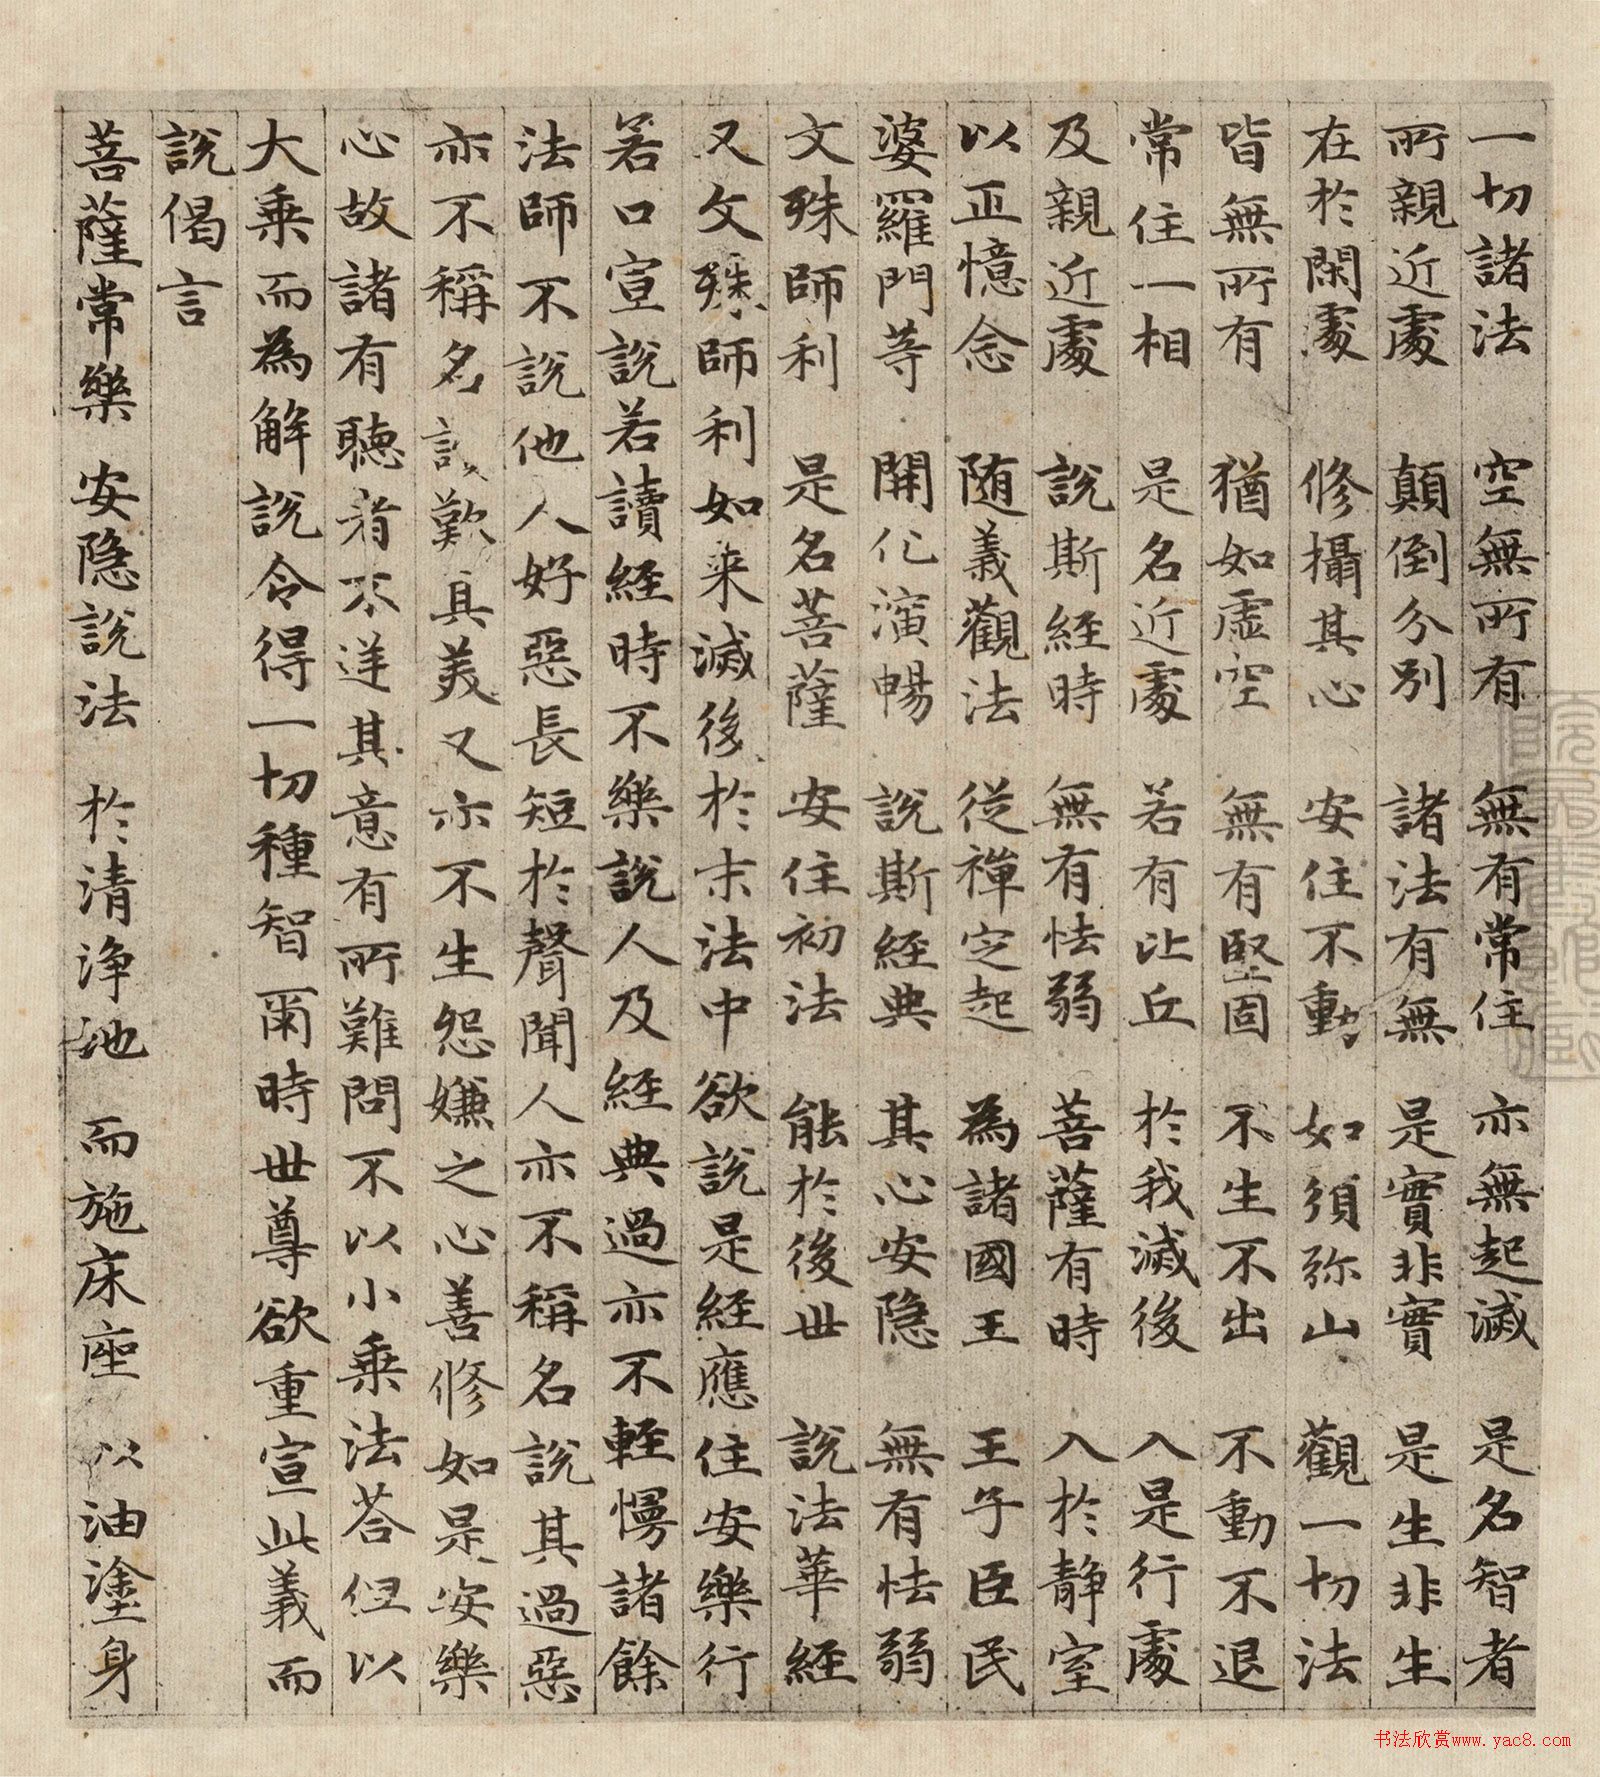 一切諸法 空無所有 無有常住 亦無起滅 是名智者
所親近處 顛倒分別 諸法有無 是實非實 是生非生
在於閑處 修攝其心 安住不動 如須弥山 觀一切法
皆無所有 猶如虛空 無有堅固 不生不出 不動不退
常住一相 是名近處 若有比丘 於我滅後 入是行處
及親近處 說斯經時 無有怯弱 菩薩有時 入於靜室
以正憶念 随義觀法 從禪定起 為諸國王 王子臣民
婆羅門等 開化演暢 說斯經典 其心安隱 無有怯弱
文殊師利 是名菩薩 安住初法 能於後世 說法華經
又文殊師利如来滅後於末法中欲說是經應住安樂行
若口宣說若讀經時不樂說人及經典過亦不輕慢諸餘
法師不說他人好惡長短於聲聞人亦不稱名說其過惡
亦不稱名讃歎其美又亦不生怨嫌之心善修如是安樂
心故諸有聽者不逆其意有所難問不以小乘法荅但以
大乘而為解說令得一切種智爾時世尊欲重宣此義而
說偈言
菩薩常樂 安隱說法 於清淨地 而施床座 以油塗身
书法欣赏www.yac8.com